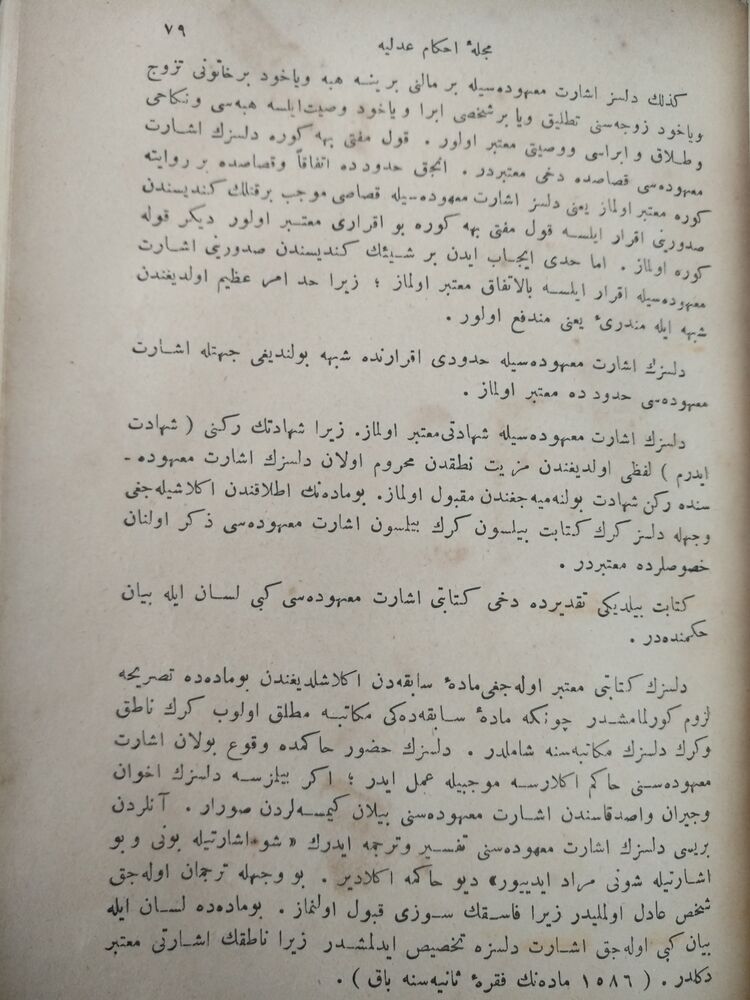 ٧٩
مجلهٔ احكام عدليه
كذلك دلسز اشارت معهوده‌سيله بر مالنى برينـه هبه وياخود برخاتونى تزوج
وياخود زوجه‌سنى تطليق ويا بر شخصى ابرا و ياخود وصيت ايلسه هبه‌سى ونكاحى
وطـلاق و ابراسى ووصيتى معتبر اولور . قول مفتى بهه كوره دلسزك اشـارت
معهوده‌سى قصاصده دخى معتبردر . انجق حدود ده اتفاقاً وقصاصده بر روايته
كوره معتبر اولماز يعنى دلسز اشارت معهوده‌سيله قصاصى موجب برقتلك كنديسندن
صدورينى اقرار ايلسـه قول مفتى بهه كوره بو اقرارى معتـبر اولور ديكر قوله
كوره اولماز . اما حدى ايجـاب ايدن بر شـيئك كنديسندن صدورينى اشـارت
معهوده‌سيله اقرار ايلسـه بالاتفاق معتبر اولماز ؛ زيرا حد امر عظيم اولديغندن
شبهه ايله مندرىٔ يعنى مندفع اولور .
دلسزك اشارت معهوده‌سيله حدودى اقرارنده شبهه بولنديغى جهتله اشـارت
معهوده‌سى حدود ده معتبر اولماز .
دلسزك اشارت معهوده‌سيله شهادتى معتبر اولماز. زيرا شهادتك ركنى ( شهادت
ايدرم ) لفظى اولديغندن مزيت نطقدن محروم اولان دلسزك اشارت معهوده ـ
سنده ركن شهادت بولنه‌ميه‌جغندن مقبول اولماز. بوماده‌نك اطلاقندن اكلاشيله‌جغى
وجهله دلسز كرك كتابت بيلسون كرك بيلمسون اشارت معهوده‌سى ذكر اولنان
خصوصلرده معتبردر .
كتابت بيلديكى تقديرده دخى كتابتى اشارت معهوده‌سى كبى لسـان ايله بيان
حكمنده‌در .
دلسزك كتابتى معتبر اوله‌جغى مادهٔ سابقه‌دن اكلاشلديغندن بوماده‌ده تصريحه
لزوم كورلمامشـدر چونكه مادهٔ سـابقه‌ده‌كى مكاتبـه مطلق اولوب كرك ناطق
وكرك دلسزك مكاتبه‌سنه شاملدر . دلسزك حضور حاكمده وقوع بولان اشارت
معهوده‌سـنى حاكم اكلارسـه موجبيله عمل ايدر ؛ اكر بيلمزسـه دلسزك اخوان
وجيران واصدقاسندن اشـارت معهوده‌سنى بيلان كيمسـه‌لردن صورار . آنلردن
بريسى دلسزك اشارت معهوده‌سنى تفسـير وترجمه ايدرك « شو اشارتيله بونى و بو
اشـارتيله شونى مراد ايدييور» ديو حاكمه اكلادير . بو وجهله ترجمان اوله‌جق
شخص عادل اولمليدر زيرا فاسـقك سـوزى قبول اولنماز . بوماده‌ده لسـان ايله
بيان كبى اوله‌جق اشـارت دلسزه تخصيص ايدلمشـدر زيرا ناطقك اشـارتى معتبر
دكلدر . ( ١٥٨٦ ماده‌نك فقرهٔ ثانيه‌سنه باق ) .